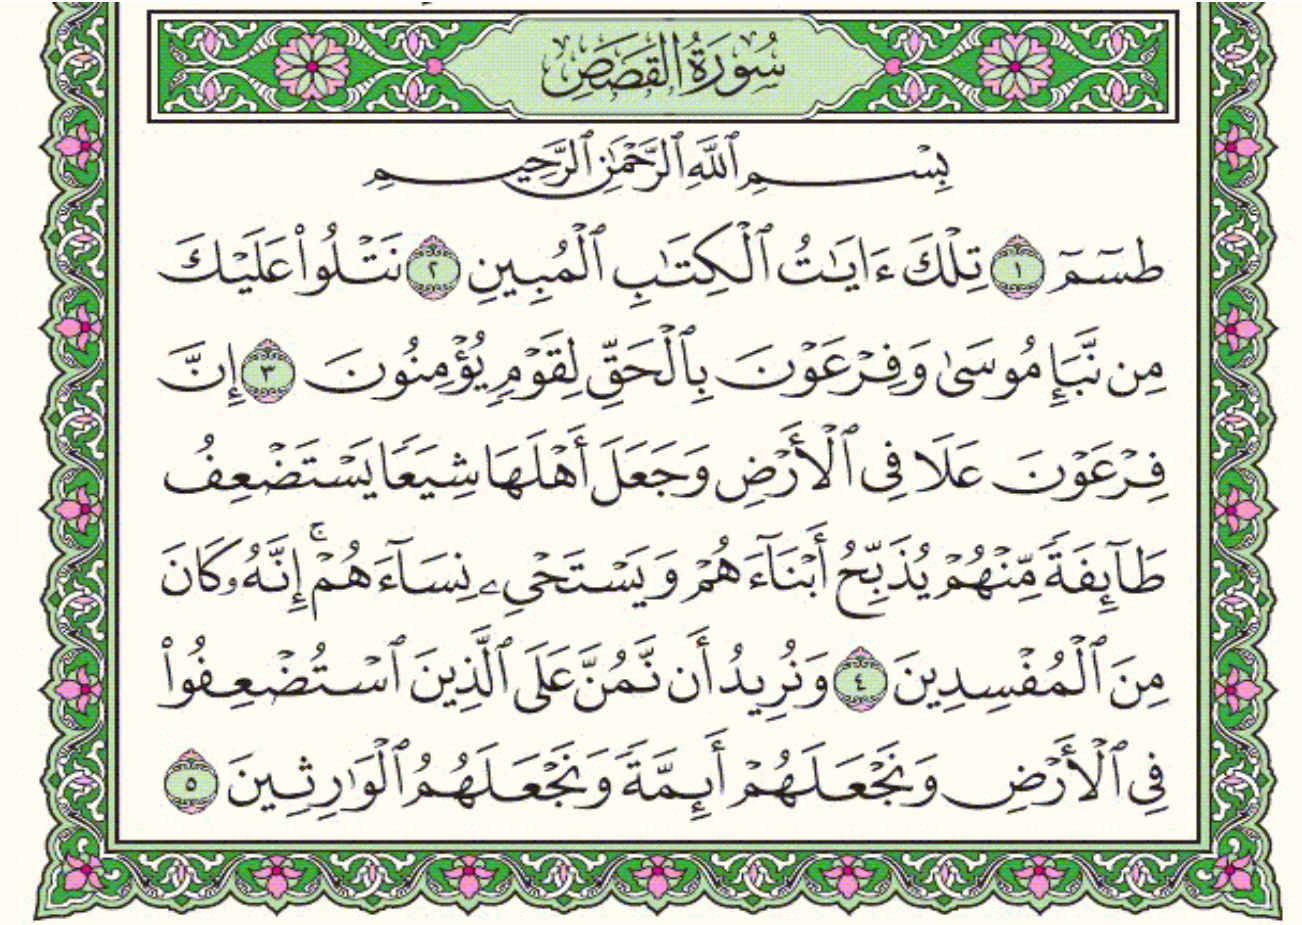 سُورَةُ القَصَصِ
بِسْمِ ٱللَّهِ ٱلرَّحْمَٰنِ ٱلرَّحِيمِ
طسٓمٓ ١ تِلْكَ ءَايَٰتُ ٱلْكِتَٰبِ ٱلْمُبِينِ ٢ نَتْلُوا۟ عَلَيْكَ
مِن نَّبَإِ مُوسَىٰ وَفِرْعَوْنَ بِٱلْحَقِّ لِقَوْمٍ يُؤْمِنُونَ ٣ إِنَّ
فِرْعَوْنَ عَلَا فِى ٱلْأَرْضِ وَجَعَلَ أَهْلَهَا شِيَعًا يَسْتَضْعِفُ
طَآئِفَةً مِّنْهُمْ يُذَبِّحُ أَبْنَآءَهُمْ وَيَسْتَحْىِۦ نِسَآءَهُمْ ۚ إِنَّهُۥ كَانَ
مِنَ ٱلْمُفْسِدِينَ ٤ وَنُرِيدُ أَن نَّمُنَّ عَلَى ٱلَّذِينَ ٱسْتُضْعِفُوا۟
فِى ٱلْأَرْضِ وَنَجْعَلَهُمْ أَئِمَّةً وَنَجْعَلَهُمُ ٱلْوَٰرِثِينَ ٥